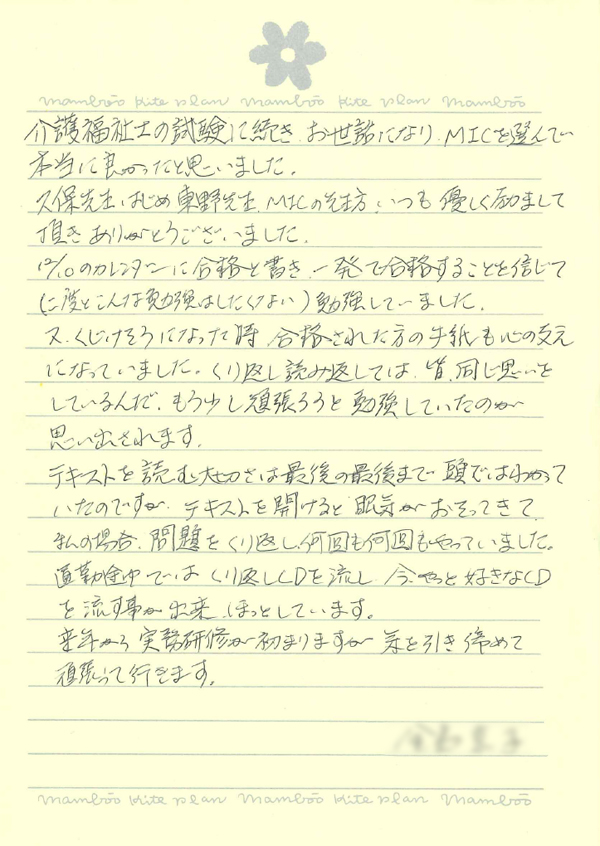 mambōo kite plan mambōo kite plan mambōo
介護福祉士の試験に続き、お世話になり、MICを選んで
本当に良かったと思いました。
久保先生はじめ東野先生、MICの先生方、いつも優しく励まして
頂きありがとうございました。
12/10のカレンダーに合格と書き、一発で合格することを信じて
(二度とこんな勉強はしたくない)勉強していました。
又、くじけそうになった時、合格された方の手紙も心の支え
になっていました。くり返し読み返しては、皆、同じ思いを
しているんだ、もう少し頑張ろうと勉強していたのが
思い出されます。
テキストを読む大切さは最後の最後まで頭ではわかって
いたのですが、テキストを開けると眠気がおそってきて、
私の場合、問題をくり返し、何回も何回もやっていました。
通勤途中ではくり返しCDを流し、今、やっと好きなCD
を流す事が出来、ほっとしています。
来年から実務研修が初まりますが気を引き締めて
頑張って行きます。
mambōo kite plan mambōo kite plan mambōo